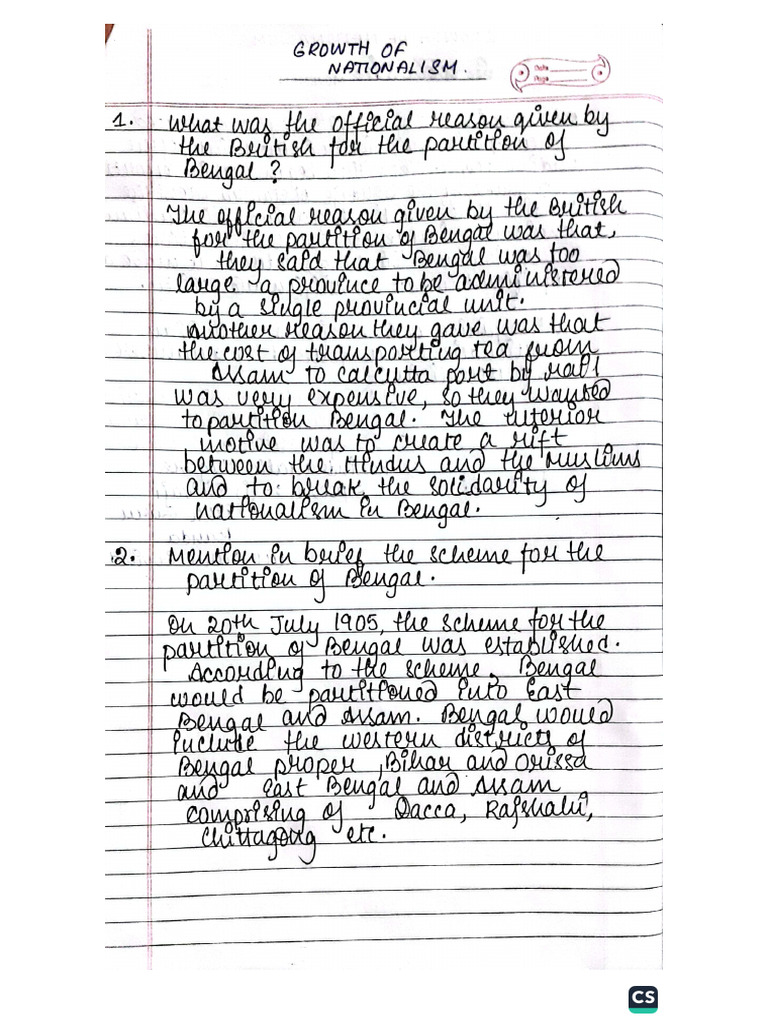 GROWTH OF
NATIONALISM.
Date
Page
1. What was the official reason given by
the British for the partition of
Bengal ?
The official reason given by the British
for the partition of Bengal was that,
they said that Bengal was too
large a province to be administered
by a single provincial unit.
Another reason they gave was that
the cost of transporting tea from
Assam to Calcutta port by rail
was very expensive, so they wanted
to partition Bengal. The interior
motive was to create a rift
between the Hindus and the Muslims
and to break the solidarity of
nationalism in Bengal.
2. Mention in brief the scheme for the
partition of Bengal.
On 20th July 1905, the scheme for the
partition of Bengal was established.
According to the scheme, Bengal
would be partitioned into East
Bengal and Assam. Bengal would
include the western districts of
Bengal proper, Bihar and Orissa
and East Bengal and Assam
comprising of Dacca, Rajshahi,
Chittagong etc.
CS